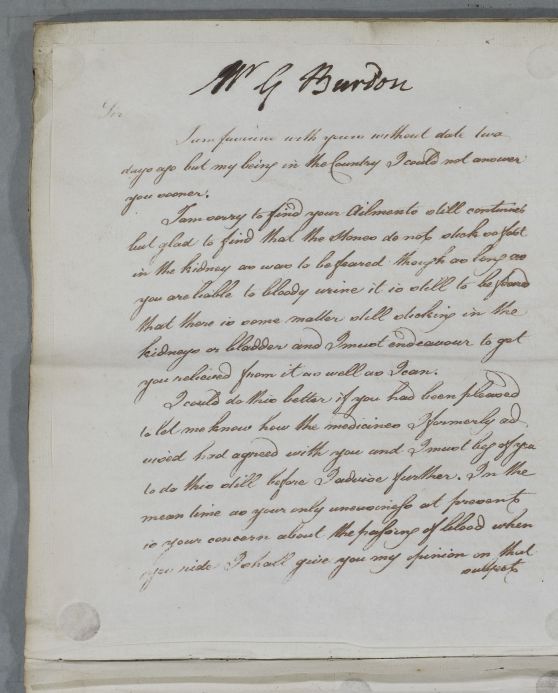 Mr G Burdon
Sir
I am favour'd with yours without date two
days ago but my being in the Country I could not answer
you sooner.
I am sorry to find your Ailments still continues
but glad to find that the stones do not stick so fast
in the kidney as was to be feared though as long as
you are liable to bloody urine it is still to be feared
that there is some matter still sticking in the
kidneys or bladder and I must endeavour to get
you relieved from it as well as I can.
I could do this better if you had been pleased
to let me know how the medicines I formerly ad
vised had agreed with you and I must beg of you
to do this still before I advise further. In the
mean time as your only uneasiness at present
is your concern about the passing of blood when
you ride I shall give you my opinion on that
subject